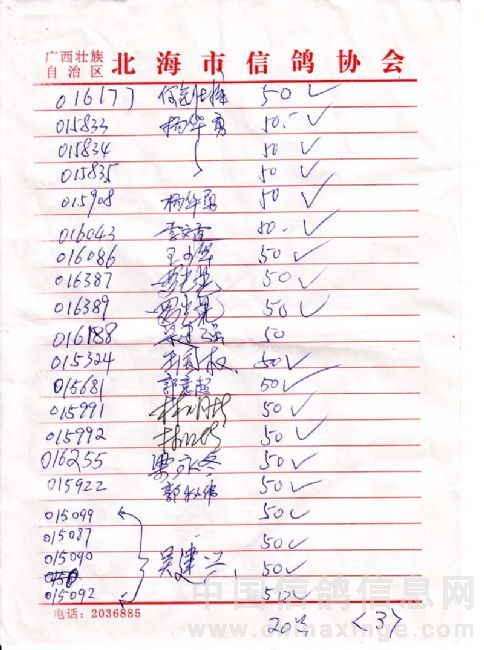 广西壮族
自治区 北海市信鸽协会
016177 50 ✓
015833 杨华勇 50.- ✓
015834 50 ✓
015835 50 ✓
015908 杨华勇 50 ✓
016043 50.- ✓
016086 王少华 50 ✓
016387 50 ✓
016389 50 ✓
016188 50
015324 50 ✓
015681 郭意超 50 ✓
015991 50 ✓
015992 50 ✓
016255 梁永冬 50 ✓
015922 50 ✓
015099 50 ✓
015087 50 ✓
015090 吴建兴 50 ✓
015092 50 ✓
电话：2036885 20羽 <3>
中国信鸽信息网
www.chinaxinge.com